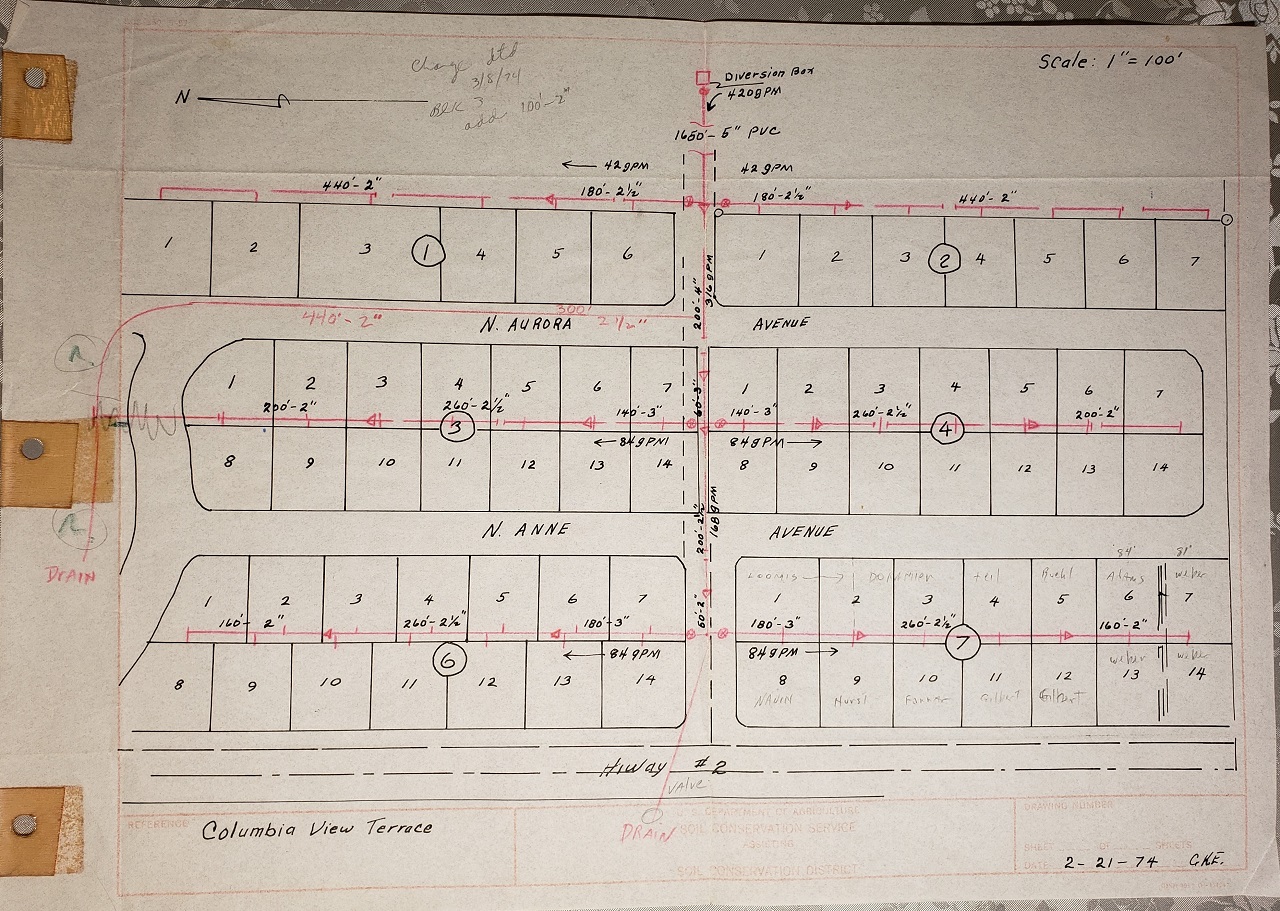 Change dtd
3/8/74
BLK 3
add 100'-2"
N
Scale: 1"=100'
Diversion Box
420gpm
1650'-5" PVC
42gpm
42gpm
440'-2"
180'-2½"
180'-2½"
440'-2"
1 2 3 1 4 5 6
1 2 3 2 4 5 6 7
200'-4"
316gpm
440'-2"
300'
2½"
N. AURORA AVENUE
1 2 3 4 5 6 7
1 2 3 4 5 6 7
200'-2"
260'-2½"
140'-3"
60'-3"
140'-3"
260'-2½"
200'-2"
3
4
84gpm
84gpm
8 9 10 11 12 13 14
8 9 10 11 12 13 14
200'-2½"
168gpm
N. ANNE AVENUE
DRAIN
84' 81'
LOOMIS Teil Ruehl weber
1 2 3 4 5 6 7
1 2 3 4 5 6 7
160'-2"
260'-2½"
180'-3"
60'-2"
180'-3"
260'-2½"
160'-2"
6
7
84gpm
84gpm
weber weber
8 9 10 11 12 13 14
8 9 10 11 12 13 14
Gilbert Gilbert
Hiway #2
VALVE
DRAIN
REFERENCE
Columbia View Terrace
U. S. DEPARTMENT OF AGRICULTURE
SOIL CONSERVATION SERVICE
ASSISTING
SOIL CONSERVATION DISTRICT
DRAWING NUMBER
SHEET OF SHEETS
DATE 2-21-74 GKE.